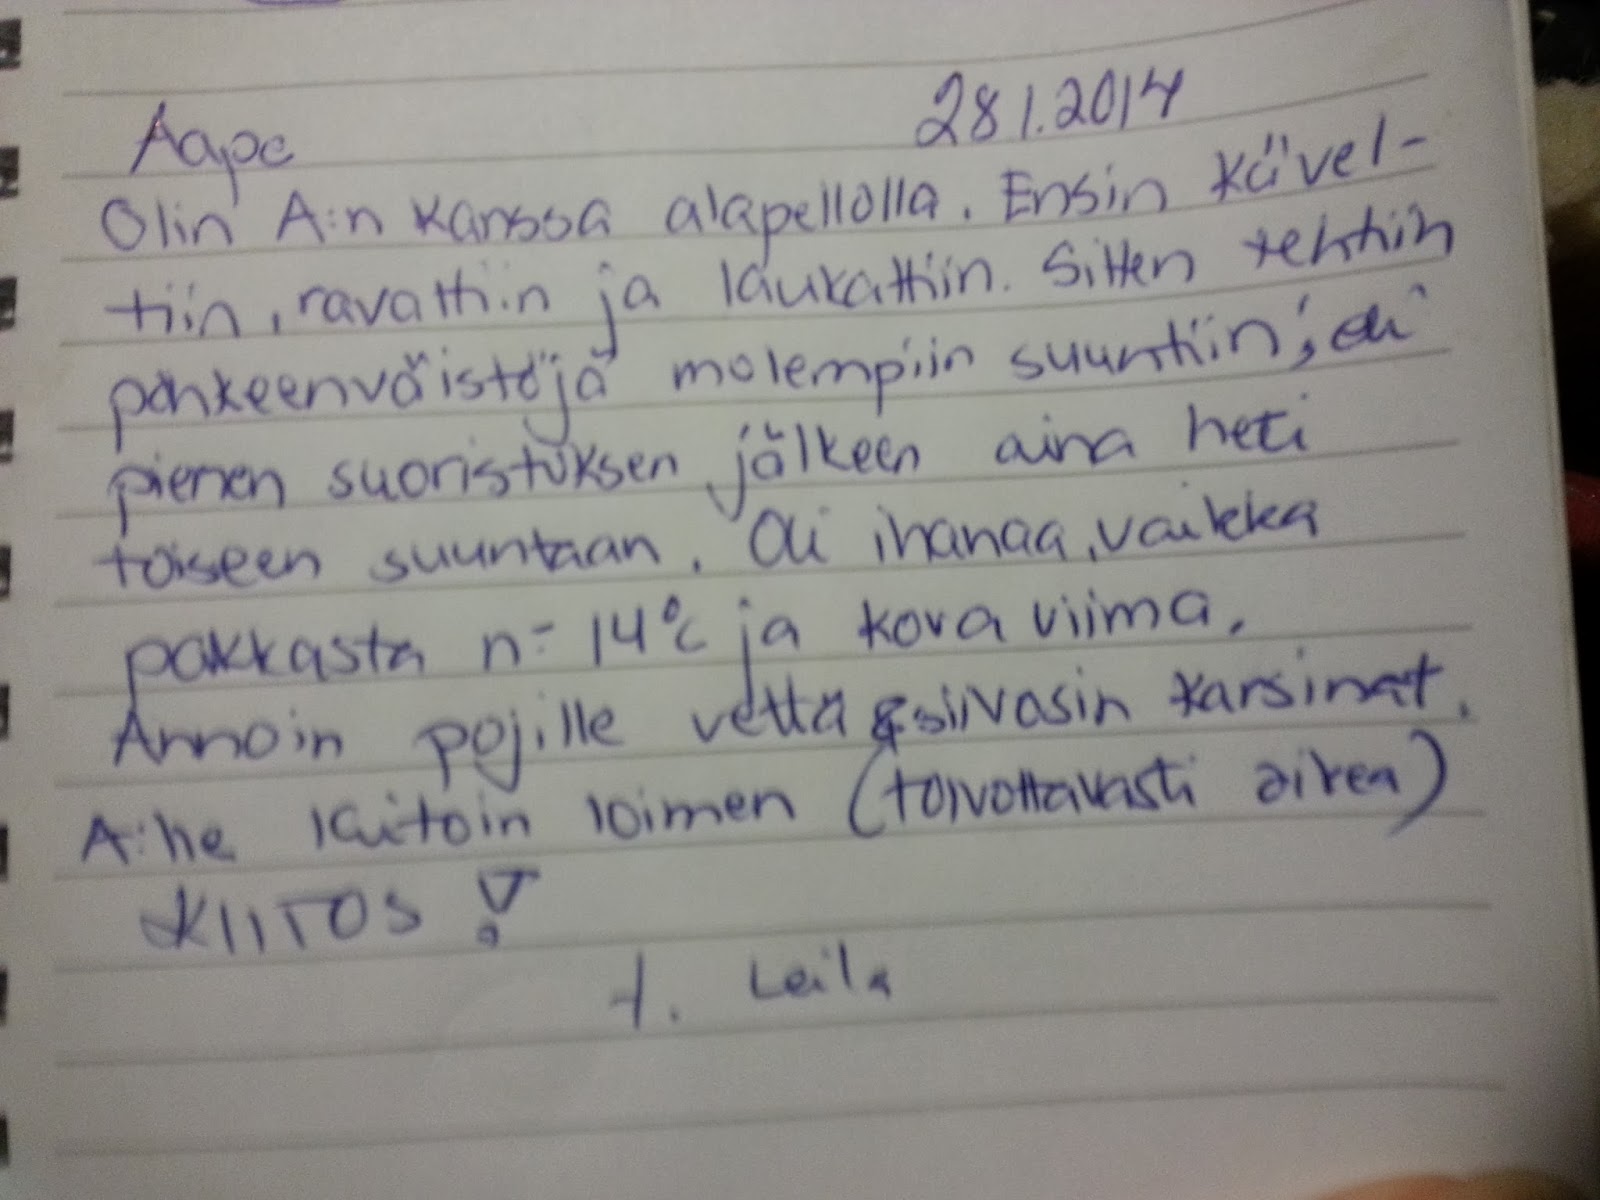 Aape 28 1.2014
Olin A:n kanssa alapellolla. Ensin kävel-
tiin, ravattiin ja laukattiin. Sitten tehtiin
pohkeenväistöjä molempiin suuntiin, eli
pienen suoristuksen jälkeen aina heti
toiseen suuntaan. Oli ihanaa, vaikka
pakkasta n - 14°C ja kova viima.
Annoin pojille vettä & siivosin karsinat.
A:lle laitoin loimen (toivottavasti oikea)
KIITOS !
t. Leila